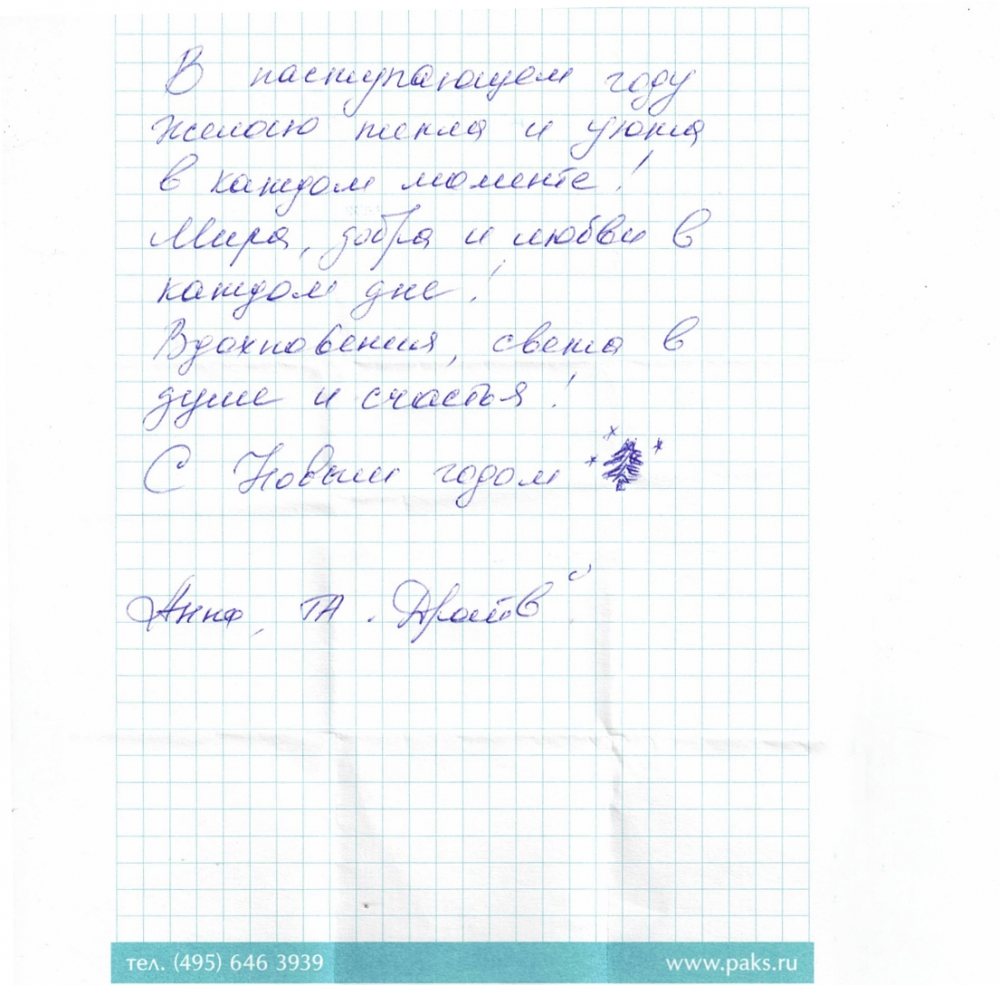 В наступающем году
желаю тепла и уюта
в каждом моменте!
Мира, добра и любви в
каждом дне!
Вдохновения, света в
душе и счастья!
С Новым годом
Анна, ТА. Драйв
тел. (495) 646 3939
www.paks.ru